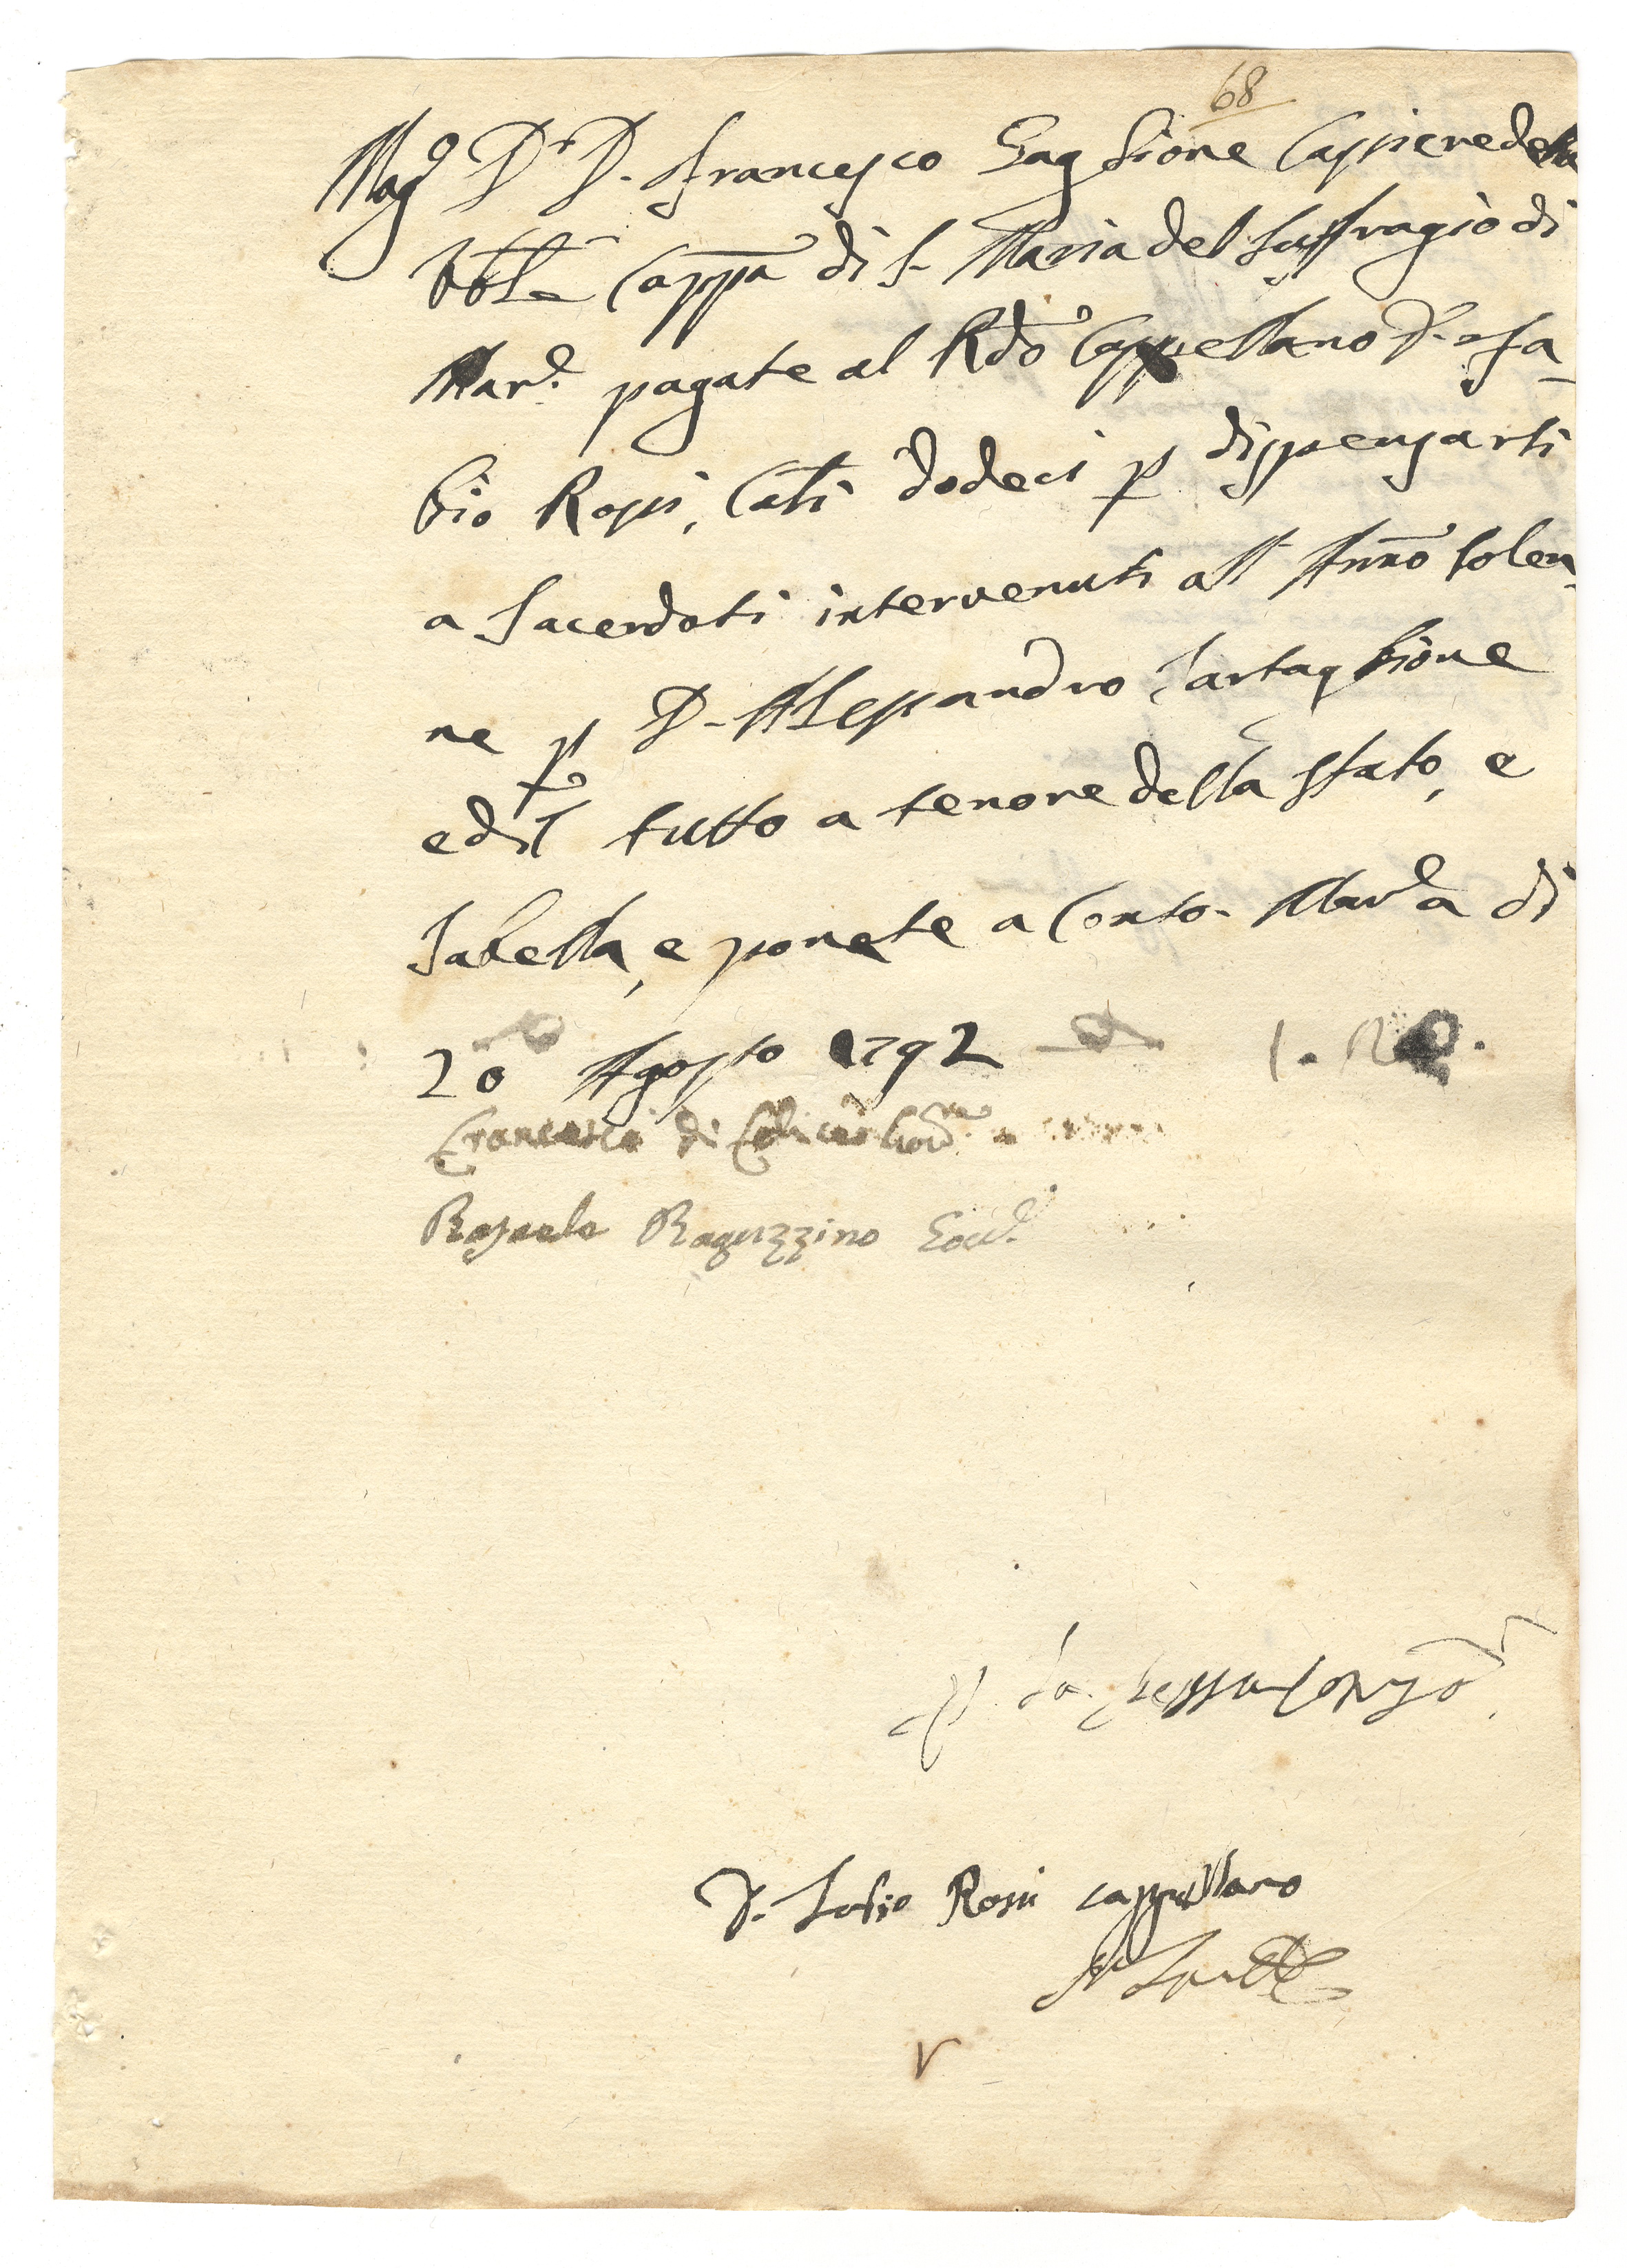 68
Mag.co D.r D. Francesco Gaglione Cassiere della
Ven.le Cappa di S. Maria del Suffragio di
Mar.e pagate al Rdo Cappellano D. Fa-
bio Rossi, Cati dodeci p dispensarli
a Sacerdoti intervenuti all' Anno solen
ne p D. Alessandro Tartaglione
ed il tutto a tenore della stato, e
Tabella, e ponete a Conto. Mar.e a di
20 Agosto 1792
Francesco di
Rafaele Raguzzino Gov.e
D. Fabio Rossi cappellano